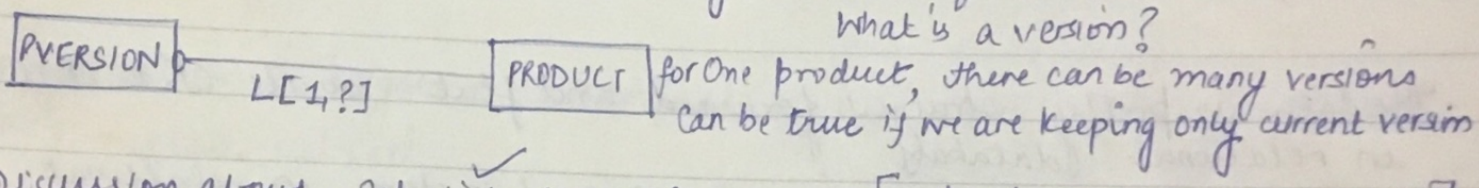 What is a version?
PVERSION
L[1,?]
PRODUCT
for One product, there can be many versions
Can be true if we are keeping only current version